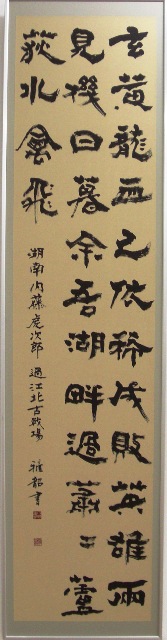 玄黄龍血已依稀成敗英雄兩
見機日暮余吾湖畔過蕭〻蘆
荻水禽飛
湖南内藤虎次郎 過江北古戰場 雅韶書